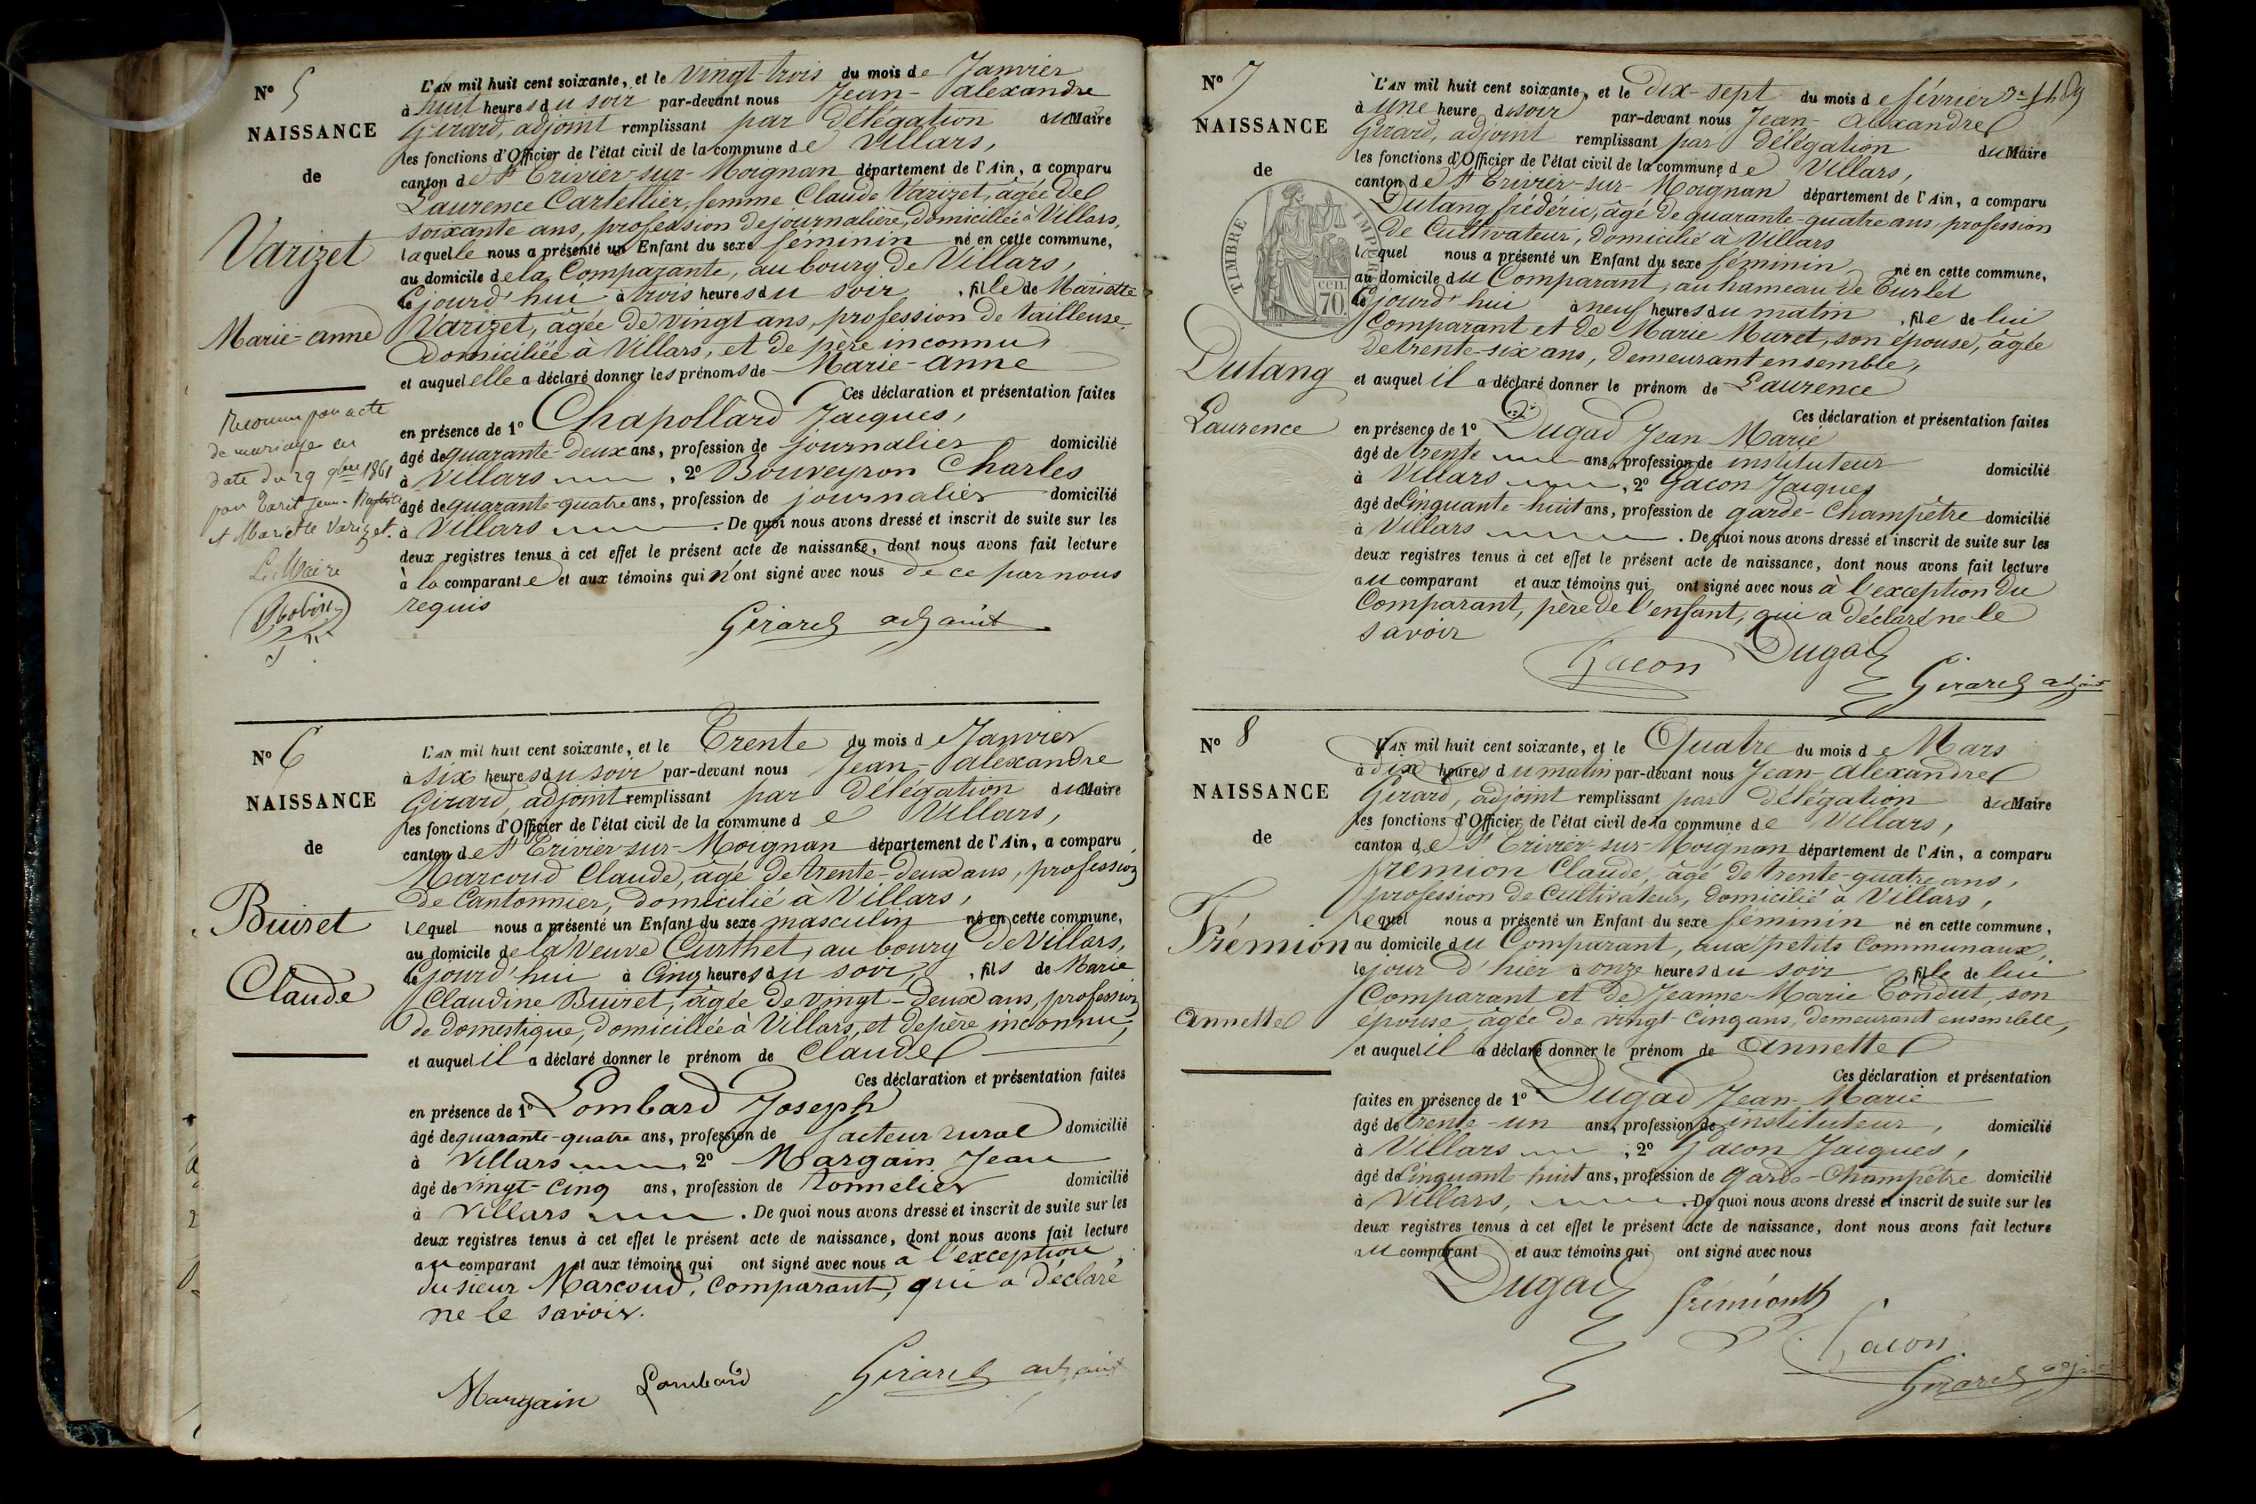 N° 5
NAISSANCE
de
Varizet
Marie-anne
Reconnu par acte
de mariage en
date du 29 9bre 1861
par Jean-Baptiste
et Mariette Varizet.
Le Maire
L'AN mil huit cent soixante, et le vingt-trois du mois de Janvier
à huit heures du soir par-devant nous Jean-alexandre
Girard, adjoint remplissant par délégation du Maire
les fonctions d'Officier de l'état civil de la commune de Villars,
canton de St Trivier-sur-Moignan département de l'Ain, a comparu
Laurence Cartellier, femme Claude Varizet, âgée de
soixante ans, profession de journalière, domiciliée à Villars,
laquelle nous a présenté un Enfant du sexe féminin né en cette commune,
au domicile de la Comparante, au bourg de Villars,
Cejourd'hui à trois heures du soir, fille de Mariette
Varizet, âgée de vingt ans, profession de tailleuse,
domiciliée à Villars, et de père inconnu
et auquel elle a déclaré donner les prénoms de Marie-anne
Ces déclaration et présentation faites
en présence de 1° Chapollard Jacques,
âgé de quarante-deux ans, profession de journalier domicilié
à Villars, 2° Bouveyron Charles
âgé de quarante-quatre ans, profession de journalier domicilié
à Villars. De quoi nous avons dressé et inscrit de suite sur les
deux registres tenus à cet effet le présent acte de naissance, dont nous avons fait lecture
à la comparante et aux témoins qui n'ont signé avec nous de ce par nous
requis
Girard adjoint
N° 6
NAISSANCE
de
Buiret
Claude
L'AN mil huit cent soixante, et le Trente du mois de Janvier
à six heures du soir par-devant nous Jean-alexandre
Girard, adjoint remplissant par délégation du Maire
les fonctions d'Officier de l'état civil de la commune de Villars,
canton de St Trivier-sur-Moignan département de l'Ain, a comparu
Marcoud Claude, âgé de trente-deux ans, profession
de Cantonnier, domicilié à Villars,
lequel nous a présenté un Enfant du sexe masculin né en cette commune,
au domicile de la Veuve Curthet, au bourg de Villars,
Cejourd'hui à Cinq heures du soir, fils de Marie
Claudine Buiret, âgée de vingt-deux ans, profession
de domestique, domiciliée à Villars, et de père inconnu,
et auquel il a déclaré donner le prénom de Claude
Ces déclaration et présentation faites
en présence de 1° Lombard Joseph
âgé de quarante-quatre ans, profession de facteur rural domicilié
à Villars, 2° Margain Jean
âgé de vingt-Cinq ans, profession de tonnelier domicilié
à Villars. De quoi nous avons dressé et inscrit de suite sur les
deux registres tenus à cet effet le présent acte de naissance, dont nous avons fait lecture
au comparant et aux témoins qui ont signé avec nous à l'exception
du sieur Marcoud, Comparant, qui a déclaré
ne le savoir.
Margain Lombard Girard adjoint
N° 7
NAISSANCE
de
TIMBRE IMPÉRIAL
70
Dutang
Laurence
L'AN mil huit cent soixante, et le Dix-sept du mois de février
à une heure du soir par-devant nous Jean-Alexandre
Girard, adjoint remplissant par délégation du Maire
les fonctions d'Officier de l'état civil de la commune de Villars,
canton de St Trivier-sur-Moignan département de l'Ain, a comparu
Dutang frédéric, âgé de quarante-quatre ans, profession
de Cultivateur, domicilié à Villars
lequel nous a présenté un Enfant du sexe féminin né en cette commune,
au domicile du Comparant, au hameau de Turlet
Cejourd'hui à neuf heures du matin, file de lui
Comparant et de Marie Muret, son épouse, âgée
de trente-six ans, demeurant ensemble,
et auquel il a déclaré donner le prénom de Laurence
Ces déclaration et présentation faites
en présence de 1° Dugad Jean Marie
âgé de trente ans, profession de instituteur domicilié
à Villars, 2° Gacon Jacques
âgé de Cinquante-huit ans, profession de garde-Champêtre domicilié
à Villars. De quoi nous avons dressé et inscrit de suite sur les
deux registres tenus à cet effet le présent acte de naissance, dont nous avons fait lecture
au comparant et aux témoins qui ont signé avec nous à l'exception du
Comparant, père de l'enfant, qui a déclaré ne le
savoir
Gacon Dugad Girard adjoint
N° 8
NAISSANCE
de
Frémion
Annette
L'AN mil huit cent soixante, et le Quatre du mois de Mars
à Dix heures du matin par-devant nous Jean-Alexandre
Girard, adjoint remplissant par délégation du Maire
les fonctions d'Officier de l'état civil de la commune de Villars,
canton de St Trivier-sur-Moignan département de l'Ain, a comparu
frémion Claude, âgé de trente-quatre ans,
profession de Cultivateur, domicilié à Villars,
lequel nous a présenté un Enfant du sexe féminin né en cette commune,
au domicile du Comparant, aux petits Communaux,
le jour d'hier à onze heures du soir, file de lui
Comparant et de Jeanne-Marie Condut, son
épouse, âgée de vingt Cinq ans, demeurant ensemble,
et auquel il a déclaré donner le prénom de Annette
Ces déclaration et présentation
faites en présence de 1° Dugad Jean-Marie
âgé de trente-un ans, profession de instituteur, domicilié
à Villars, 2° Gacon Jacques,
âgé de Cinquante-huit ans, profession de Garde-Champêtre domicilié
à Villars, De quoi nous avons dressé et inscrit de suite sur les
deux registres tenus à cet effet le présent acte de naissance, dont nous avons fait lecture
au comparant et aux témoins qui ont signé avec nous
Dugad frémion
Gacon
Girard adjoint